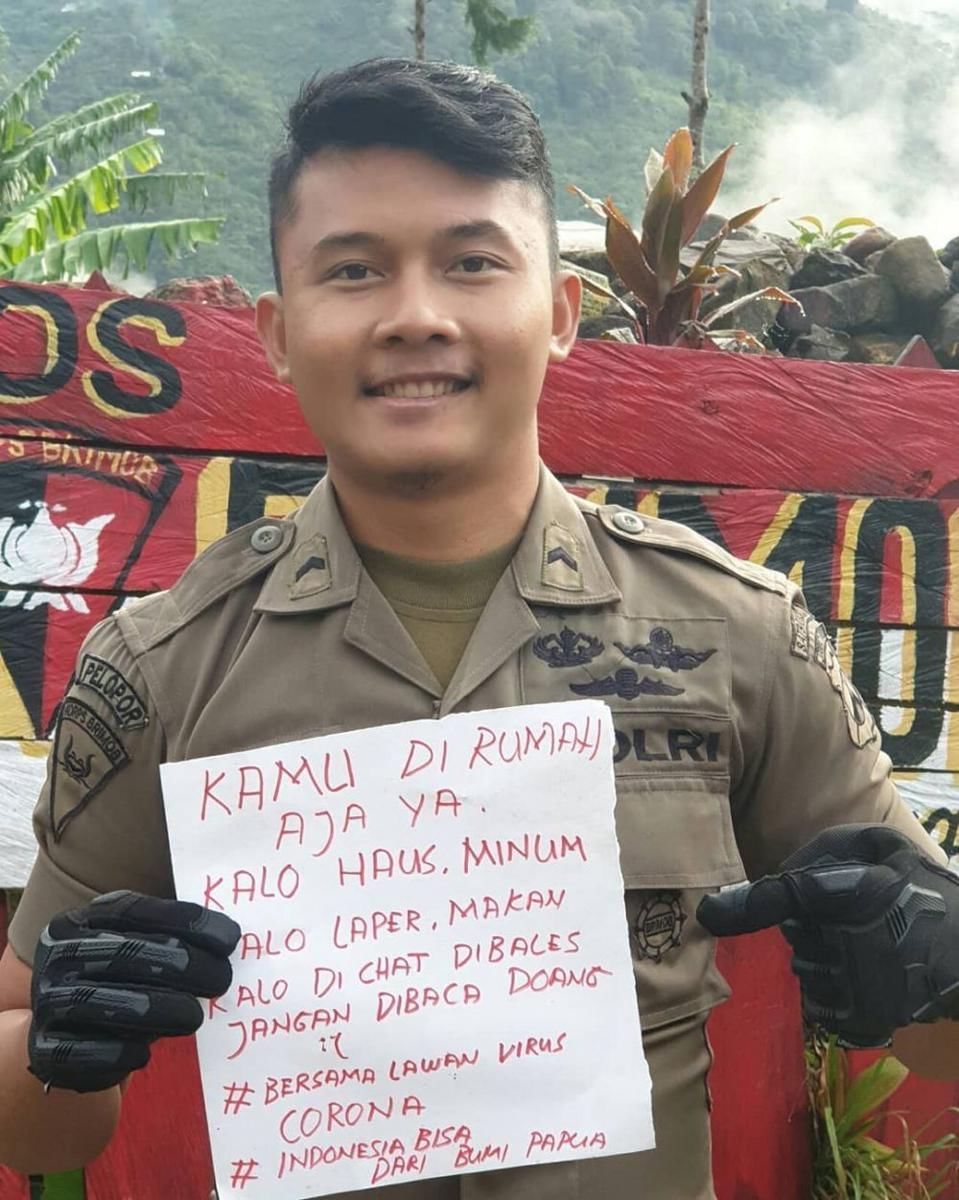 OS
BRIMOB
PELOPOR
KORPS BRIMOB
POLRI
BRIMOB
KAMU DI RUMAH
AJA YA.
KALO HAUS. MINUM
KALO LAPER. MAKAN
KALO DI CHAT DIBALES
JANGAN DIBACA DOANG
:(
# BERSAMA LAWAN VIRUS
CORONA
# INDONESIA BISA
DARI BUMI PAPUA